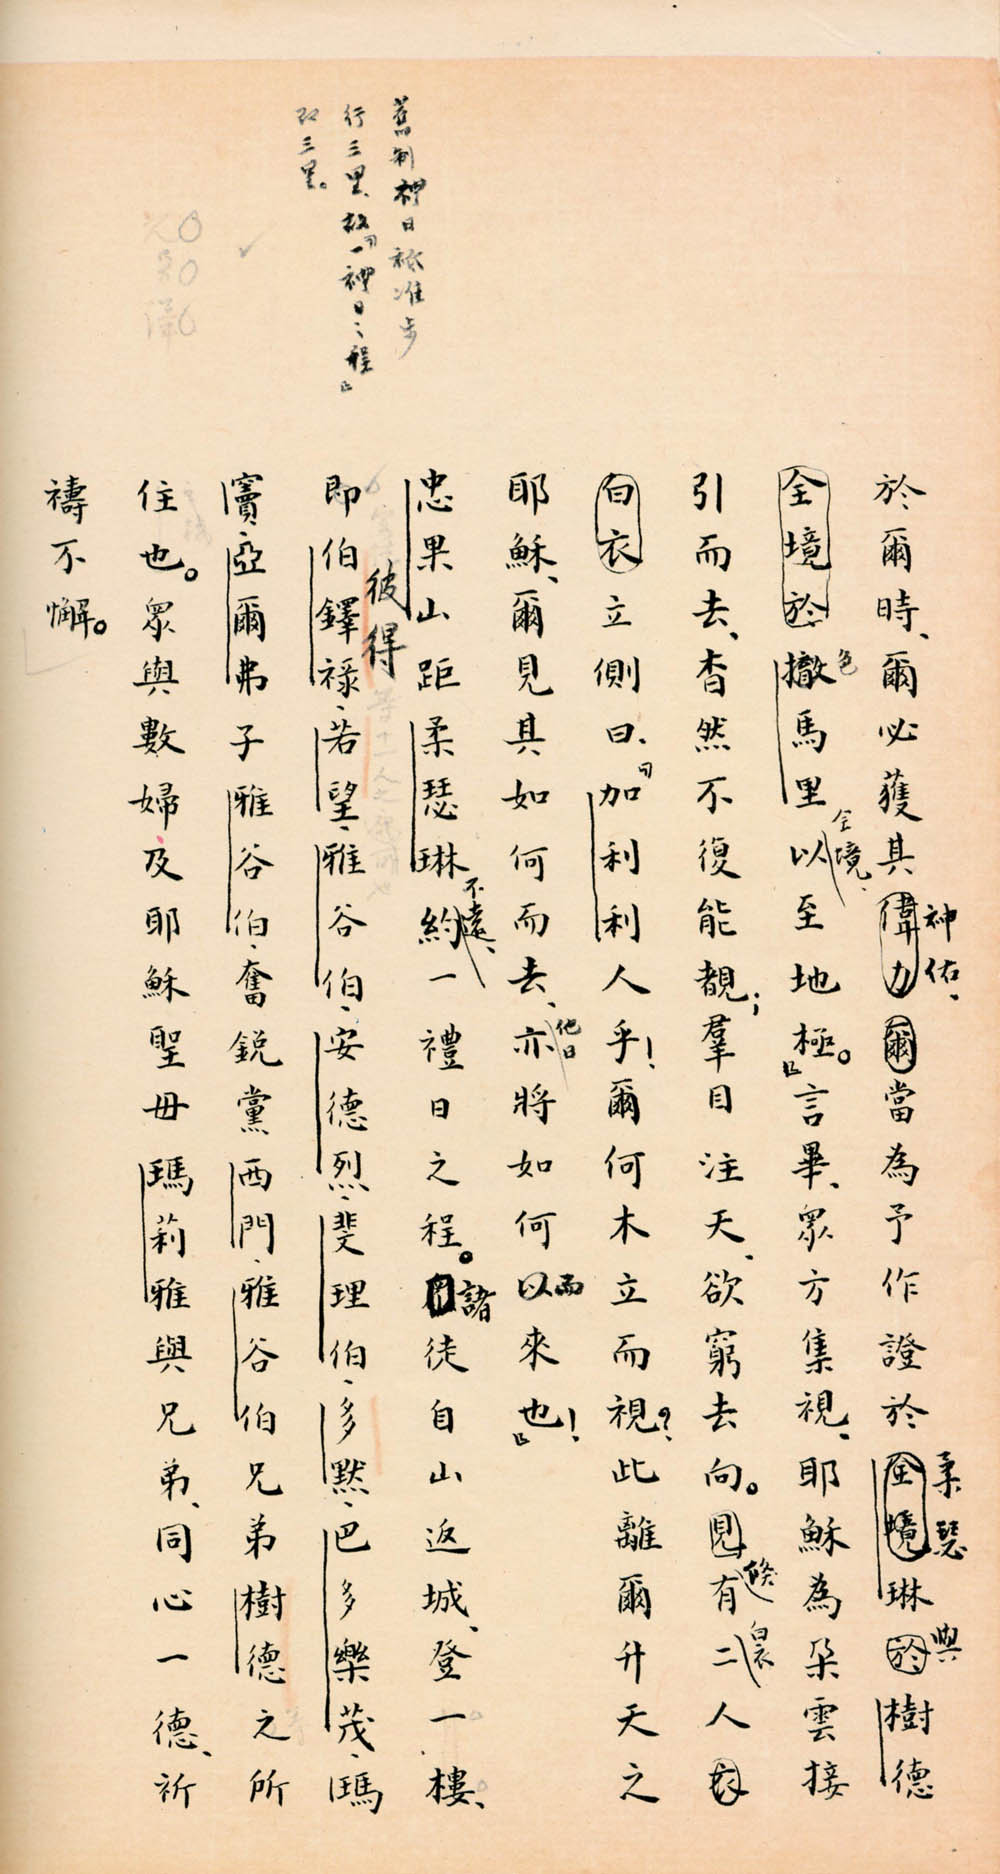 舊制禮日祗准步
行三里、故曰「一禮日之程」
即三里。
於爾時、爾必獲其偉力爾當為予作證於全境琳於樹德
神佑、
柔瑟
與
全境於撒馬里以至地極。」言畢、眾方集視、耶穌為朶雲接
色
全境、
引而去、杳然不復能覩；羣目注天、欲窮去向。見有二人衣
倏
白衣
白衣立側曰、「加利利人乎！爾何木立而視？此離爾升天之
耶穌、爾見其如何而去、亦將如何以來也！」
他日
而
忠果山距柔瑟琳約一禮日之程。徒自山返城、登一樓、
不遠、
諸
即伯鐸祿、若望、雅谷伯、安德烈、斐理伯、多默、巴多樂茂、瑪
彼得
竇、亞爾弗子雅谷伯、奮銳黨西門、雅谷伯兄弟樹德之所
住也。眾與數婦及耶穌聖母瑪莉雅與兄弟、同心一德、祈
禱不懈。